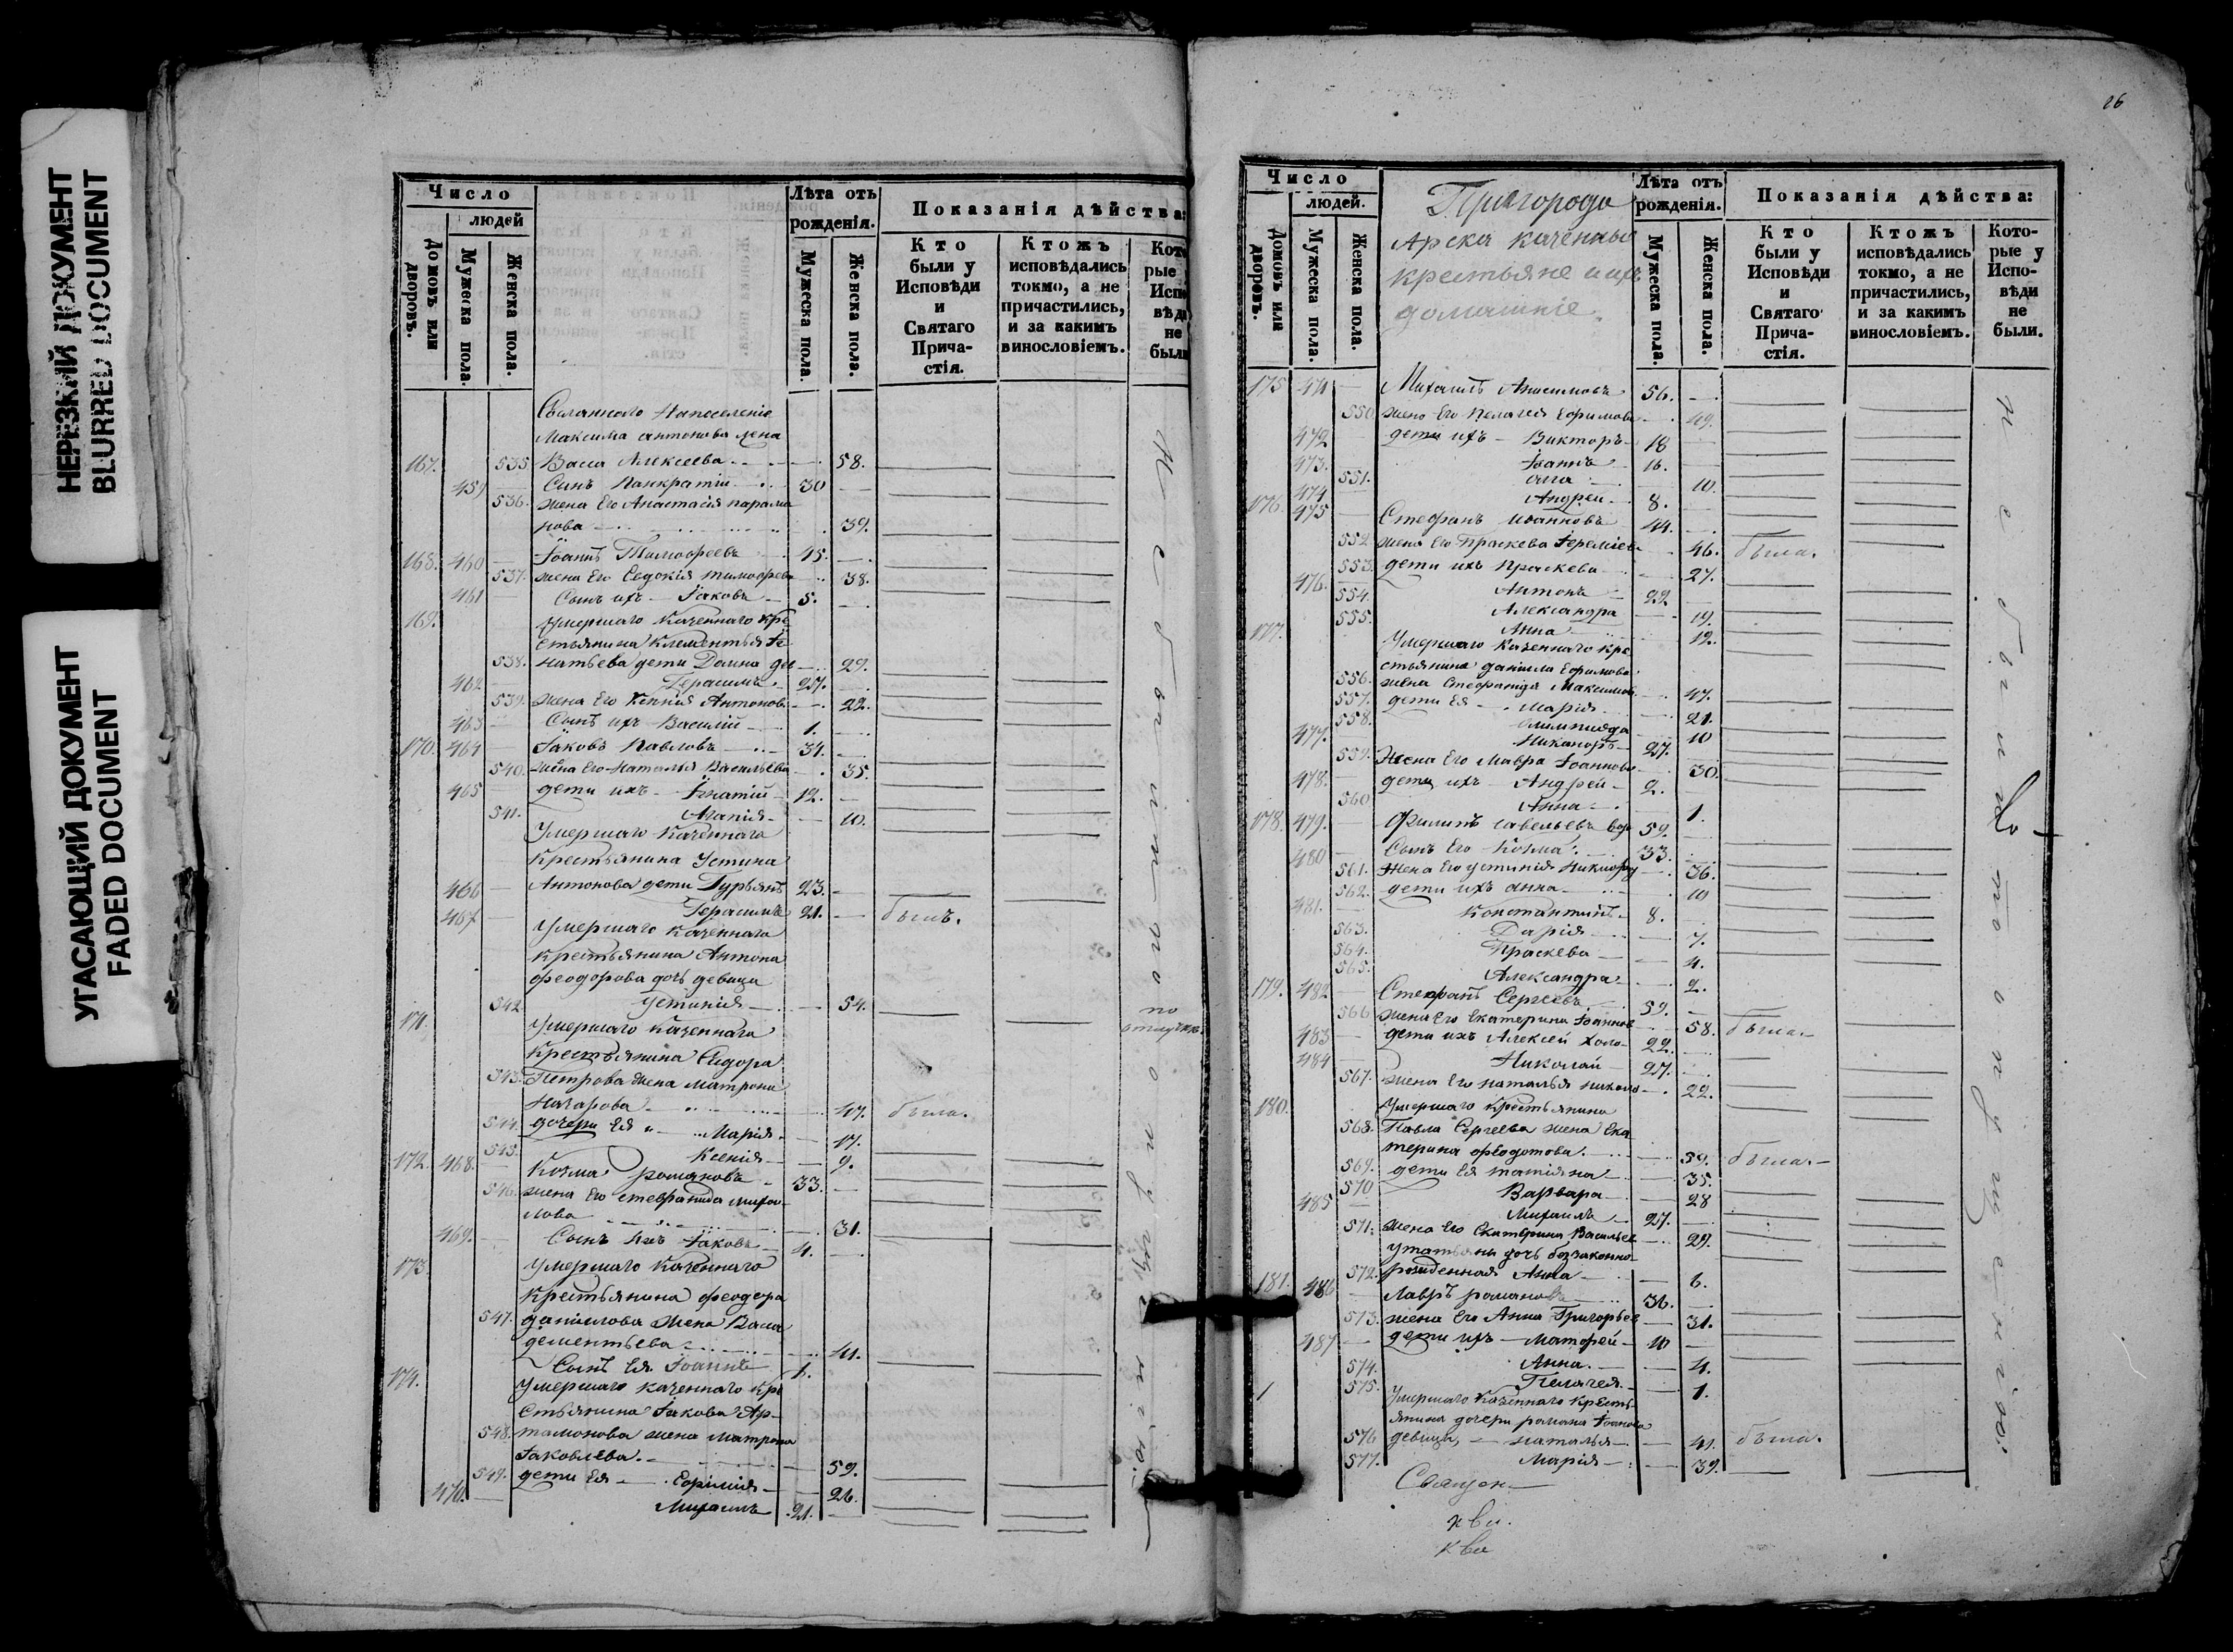 НЕРЕЗКИЙ ДОКУМЕНТ
BLURRED DOCUMENT
УГАСАЮЩИЙ ДОКУМЕНТ
FADED DOCUMENT
Число
людей
Домовъ или дворовъ.
Мужеска пола.
Женска пола.
Лѣта отъ рожденія.
Мужеска пола.
Женска пола.
Показанія дѣйства:
Кто были у Исповѣди и Святаго Прича-стія.
Ктожъ исповѣдались токмо, а не причастились, и за какимъ винословіемъ.
Максима Антонова жена
167. 535. Васса Алексеева 58.
459 Сынъ Панкратій 30
536. жена Его Анастасія парамо
нова 39.
168. 460 Іоаннъ Тимофеевъ 45.
537. жена Его Евдокія тимофеева 38.
461 Сынъ ихъ Іаковъ 5.
169. Умершаго Казеннаго кре
стьянина Клементья Иг
538. натьева дети 29.
462 Герасимъ 27.
539. жена Его Ксенія Антонова 22.
463 Сынъ ихъ Василій 1.
170. 464 Іаковъ Павловъ 34.
540. жена Его Наталья Васильева 35.
465 дети ихъ Игнатій 12.
541. Агапія 10.
Умершаго Казеннаго
Крестьянина Устина
466 Антонова дети Гурьянъ 23.
467 Герасимъ 21. былъ.
Умершаго Казеннаго
Крестьянина Антона
феодорова дочь девица
542 Устинія 54.
по отлучке
171. Умершаго Казеннаго
Крестьянина Сидора
543. Петрова жена матрона
Назарова 47. была.
544. дочери Ея Марія 17.
545. Ксенія 9.
172. 468. Козма романовъ 33.
546. жена Его стефанида михаи
лова 31.
469. Сынъ ихъ Іаковъ 4.
173. Умершаго Казеннаго
Крестьянина феодора
547. даніилова жена Васса
дементьева 41.
Сынъ Ея Іоаннъ 1.
174. Умершаго казеннаго кре
стьянина Іакова Ар-
548. тамонова жена матрона
Іаковлева. 59.
549. дети Ея Евфимія 26.
470. Михаилъ 21.
Не были по опущенію.
26
Число
людей.
Домовъ или дворовъ.
Мужеска пола.
Женска пола.
Пригорода
Арска казенныя
крестьяне и ихъ
домашніе.
Лѣта отъ рожденія.
Мужеска пола.
Женска пола.
Показанія дѣйства:
Кто были у Исповѣди и Святаго Прича-стія.
Ктожъ исповѣдались токмо, а не причастились, и за какимъ винословіемъ.
Кото-рые у Испо-вѣди не были.
175 471 Михаилъ Анисимовъ 56.
550 жена Его Пелагея Ефимова 49.
472 дети ихъ Викторъ 18
473. Іоаннъ 16.
551. 10.
474 Андрей 8.
176. 475 Стефанъ Иоанновъ 44.
552 жена Его Праскева Іереміева 46. была.
553. дети ихъ Праскева 27.
476. Антонъ 22
554. Александра 19.
555. Анна 12.
177. Умершаго Казеннаго кре
стьянина даніила Ефимова
556. жена Стефанида Максимов 47.
557. дети Ея Марія 21.
558. Олимпиада 10
477. Никаноръ 27.
559. Жена Его Мавра Іоаннова 30.
478. дети ихъ Андрей 2.
560 Анна 1.
178. 479. Филиппъ савельевъ 59.
480 Сынъ Его Козма 33.
561. Жена Его устинія Никифор 36.
562. дети ихъ анна 10
481. Константинъ 8.
563. Дарія 7.
564. Праскева 4.
565. Александра 2.
179. 482 Стефанъ Сергеевъ 59.
566 жена Его Екатерина Іаннов 58. была.
483 дети ихъ Алексей холо 22.
484 Николай 27.
567. жена Его наталья никола 22.
180. Умершаго Крестьянина
568. Павла Сергеева жена Ека
терина феодотова. 59. была
569. дети Ея татіяна 35.
570 Варвара 28
485 Михаилъ 27.
571. жена Его Екатерина Васильев 29.
у татьяны дочь беззаконно-
572. рожденная Анна 6.
181. 486 Лавръ романовъ 36.
573. жена Его Анна Григорьев 31.
487 дети ихъ Матфей 10
574. Анна. 4.
575. Пелагея 1.
Умершаго Казеннаго Кресть-
янина дочери романа Іоанова
576 девицы, наталья 41. была.
577. Марія 39.
Священ
Не были по опущенію.